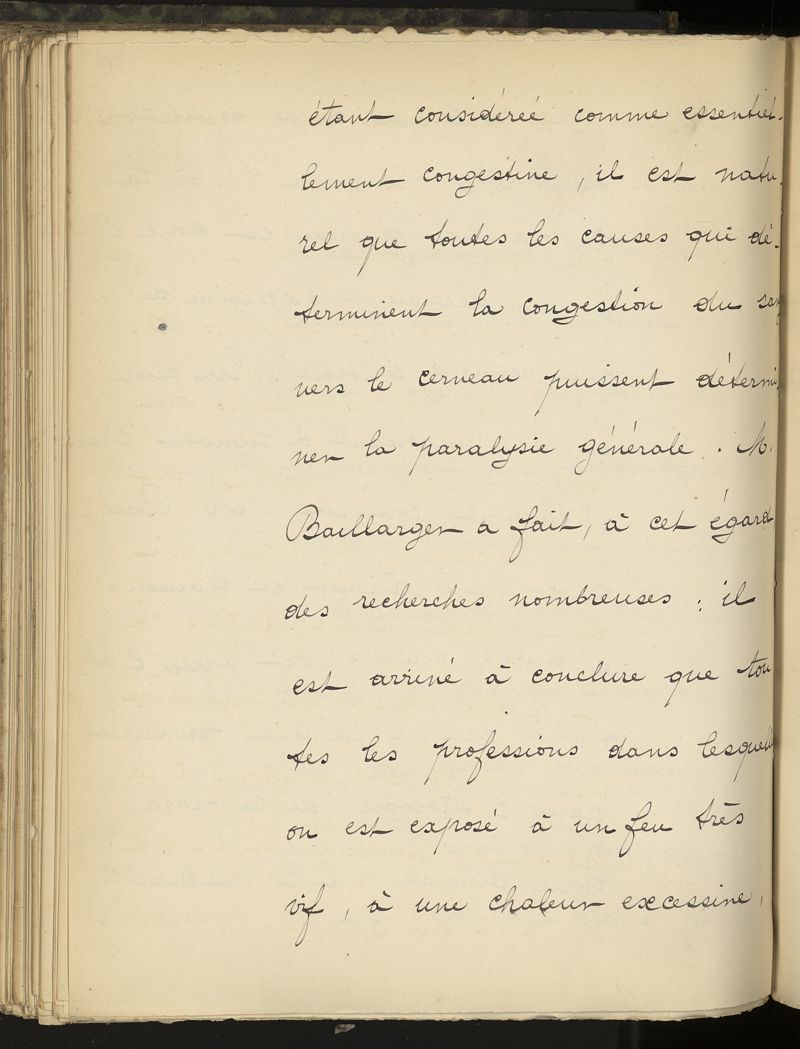 étant considéréé comme essentiel-
lement congestive, il est natu-
rel que toutes les causes qui dé-
terminent la congestion du sang
vers le cerveau puissent détermi-
ner la paralysie générale. M.
Baillarger a fait, à cet égard
des recherches nombreuses ; il
est arrivé à conclure que tou
tes les professions dans lesquelles
on est exposé à un feu très
vif, à une chaleur excessive,